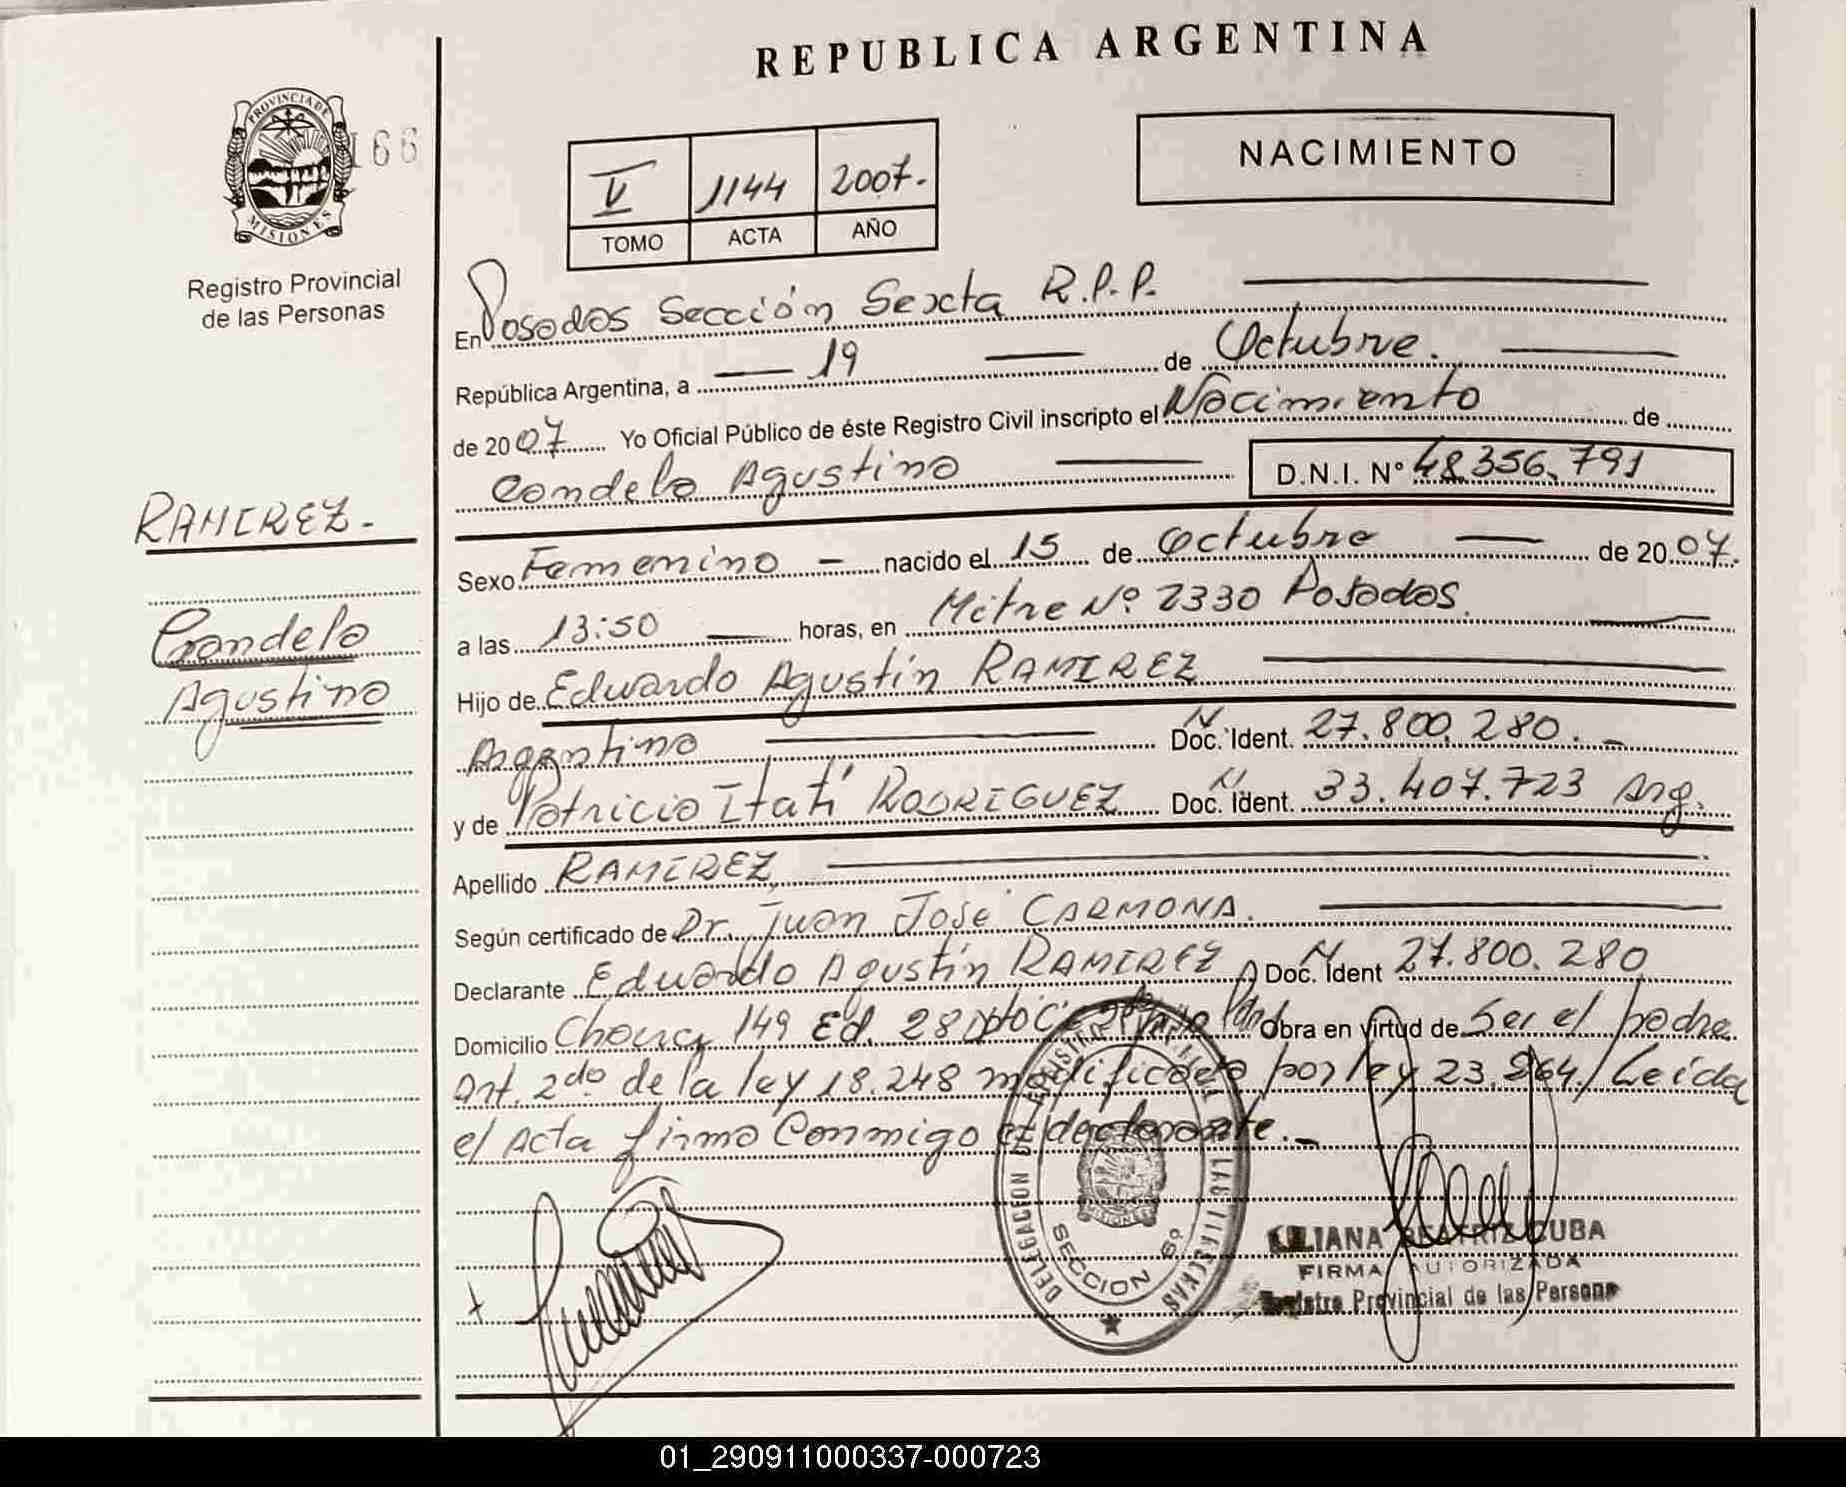 REPUBLICA ARGENTINA
PROVINCIA DE
MISIONES
166
Registro Provincial
de las Personas
V 1144 2007.
TOMO ACTA AÑO
NACIMIENTO
RAMIREZ.-
Candela
Agustina
En Posadas Sección Sexta R.P.P.
República Argentina, a 19 de Octubre.
de 2007 Yo Oficial Público de éste Registro Civil inscripto el Nacimiento de
Candela Agustina D.N.I. Nº 48.356.791
Sexo Femenino - nacido el 15 de Octubre de 2007.
a las 13:50 horas, en Mitre Nº 2330 Posadas.
Hijo de Eduardo Agustín RAMIREZ
Argentino Doc. Ident. N 27.800.280.-
y de Patricia Itatí RODRIGUEZ Doc. Ident. N 33.407.723 Arg.
Apellido RAMIREZ
Según certificado de Dr. Juan José CARMONA.
Declarante Eduardo Agustín RAMIREZ Doc. Ident N 27.800.280
Domicilio 149 Ed. 28 Obra en virtud de Ser el padre
Art. 2do de la ley 18.248 modificada por ley 23.264./ Leida
el Acta firma Conmigo el declarante.-
DELEGACION
SECCION 6º
LILIANA BEATRIZ CUBA
FIRMA AUTORIZADA
Registro Provincial de las Personas
01_290911000337-000723